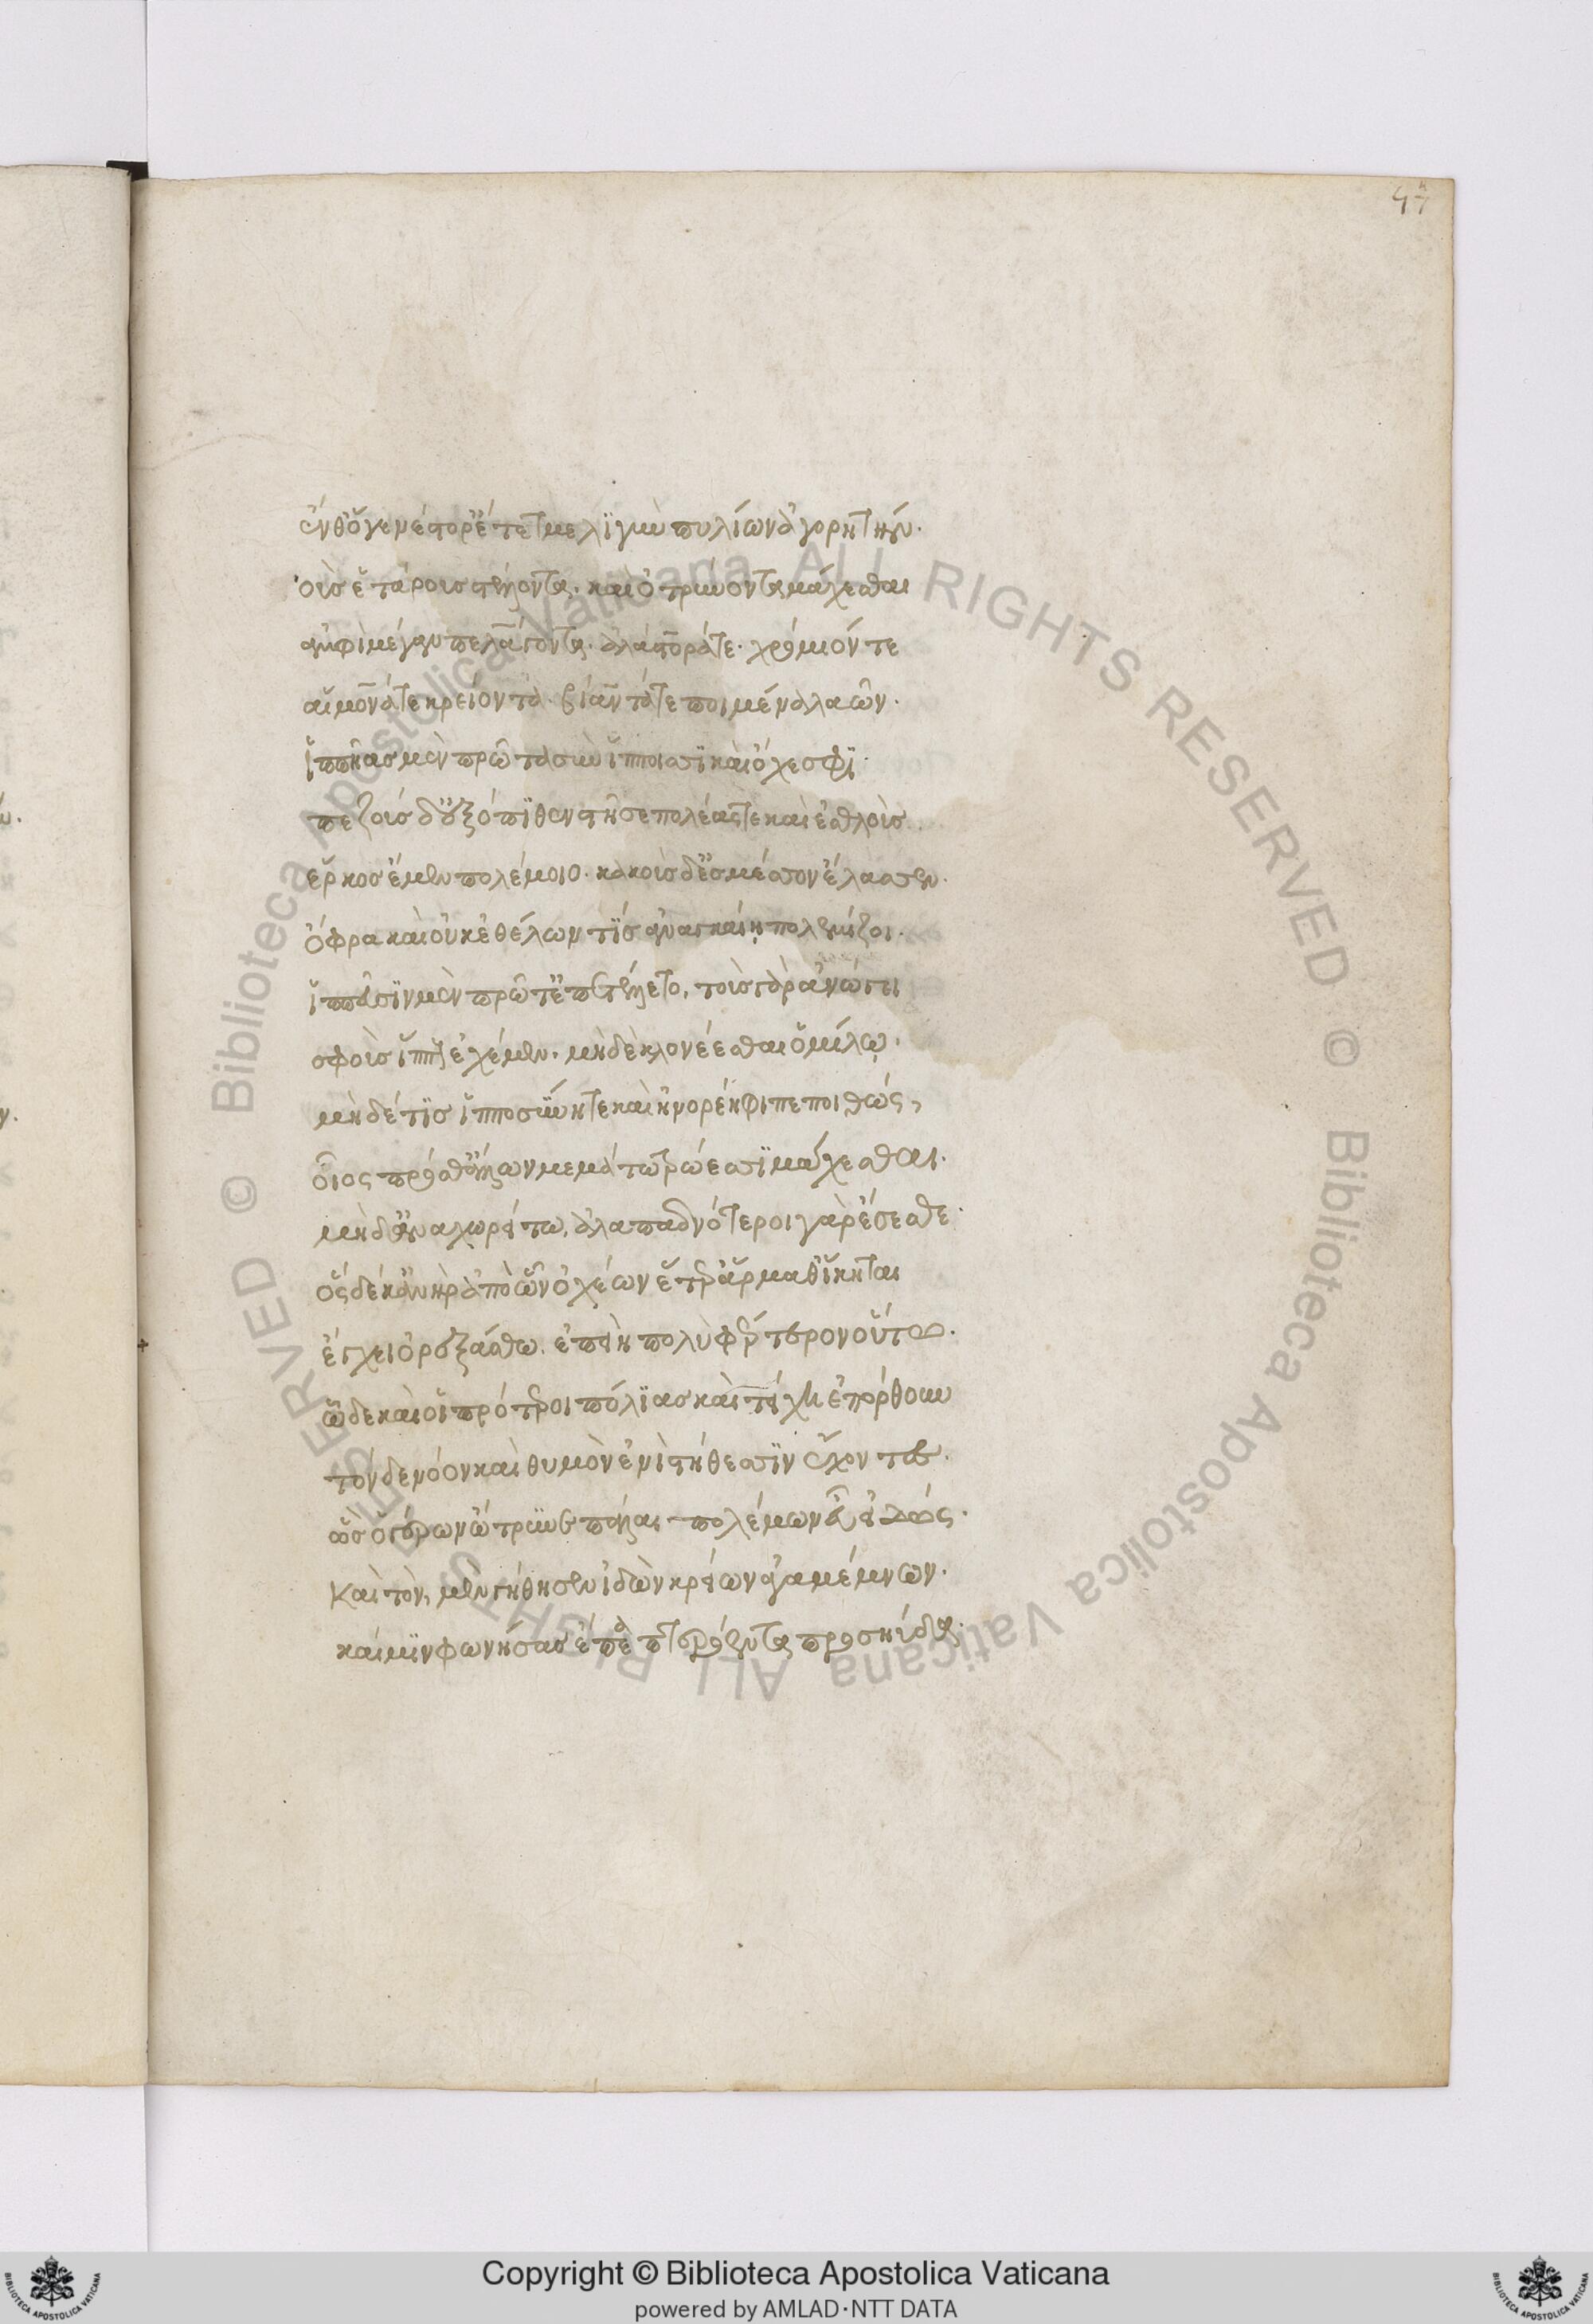 47
ἔνθ' ὅγε νέστορ' ἔτετμε λϊγὺν πυλίων ἀγορητήν.
οἷσ ἑτάροισ στέλλοντα. καὶ ὀτρύνοντα μάχεσθαι
ἀμφὶ μέγαν πελάγοντα. ἀλάστορά τε. χρόμιόν τε
αἵμονά τε κρείοντα. βίαντά τε ποιμένα λαῶν.
ἱππῆασ μὲν πρῶτα σὺν ἵπποισϊ καὶ ὄχεσφϊ.
πεζοὺσ δ' ἐξόπϊθεν στῆσε πολέας τε καὶ ἐσθλοὺσ.
ἕρκοσ ἔμεν πολέμοιο. κακοὺσ δ' ἐσ μέσσον ἔλασσεν.
ὄφρα καὶ οὐκ ἐθέλων τϊσ ἀναγκαίῃ πολεμίζοι.
ἱππεῦσϊν μὲν πρῶτ' ἐπετέλλετο, τοὺσ γὰρ ἀνώγει
σφοὺσ ἵππους ἐχέμεν. μὴδὲ κλονέεσθαι ὁμίλῳ.
μὴδέ τϊσ ἱπποσύνῃ τε καὶ ἠνορέηφι πεποιθώς,
οἷος πρόσθ' ἄλλων μεμάτω τρώεσσϊ μάχεσθαι.
μὴδ' ἀναχωρείτω, ἀλαπαδνότεροι γὰρ ἔσεσθε.
ὃς δέ κ' ἀνὴρ ἀπὸ ὧν ὀχέων ἕτερ' ἅρμαθ' ἵκηται
ἔγχει ὀρεξάσθω. ἐπειὴ πολὺ φέρτερον οὕτω.
ὧδε καὶ οἱ πρότεροι πόλϊασ καὶ τείχε' ἐπόρθουν
τόνδε νόον καὶ θυμὸν ἐνὶ στήθεσσϊν ἔχοντες.
ὣσ ὁ γέρων ὤτρυνε πάλαι πολέμων εὖ εἰδώς.
καὶ τὸν, μὲν γήθησεν ἰδὼν κρείων ἀγαμέμνων.
καί μϊν φωνήσασ ἔπεα πτερόεντα προσηύδα.
Copyright © Biblioteca Apostolica Vaticana
powered by AMLAD·NTT DATA
© Biblioteca Apostolica Vaticana ALL RIGHTS RESERVED © Biblioteca Apostolica Vaticana ALL RIGHTS RESERVED